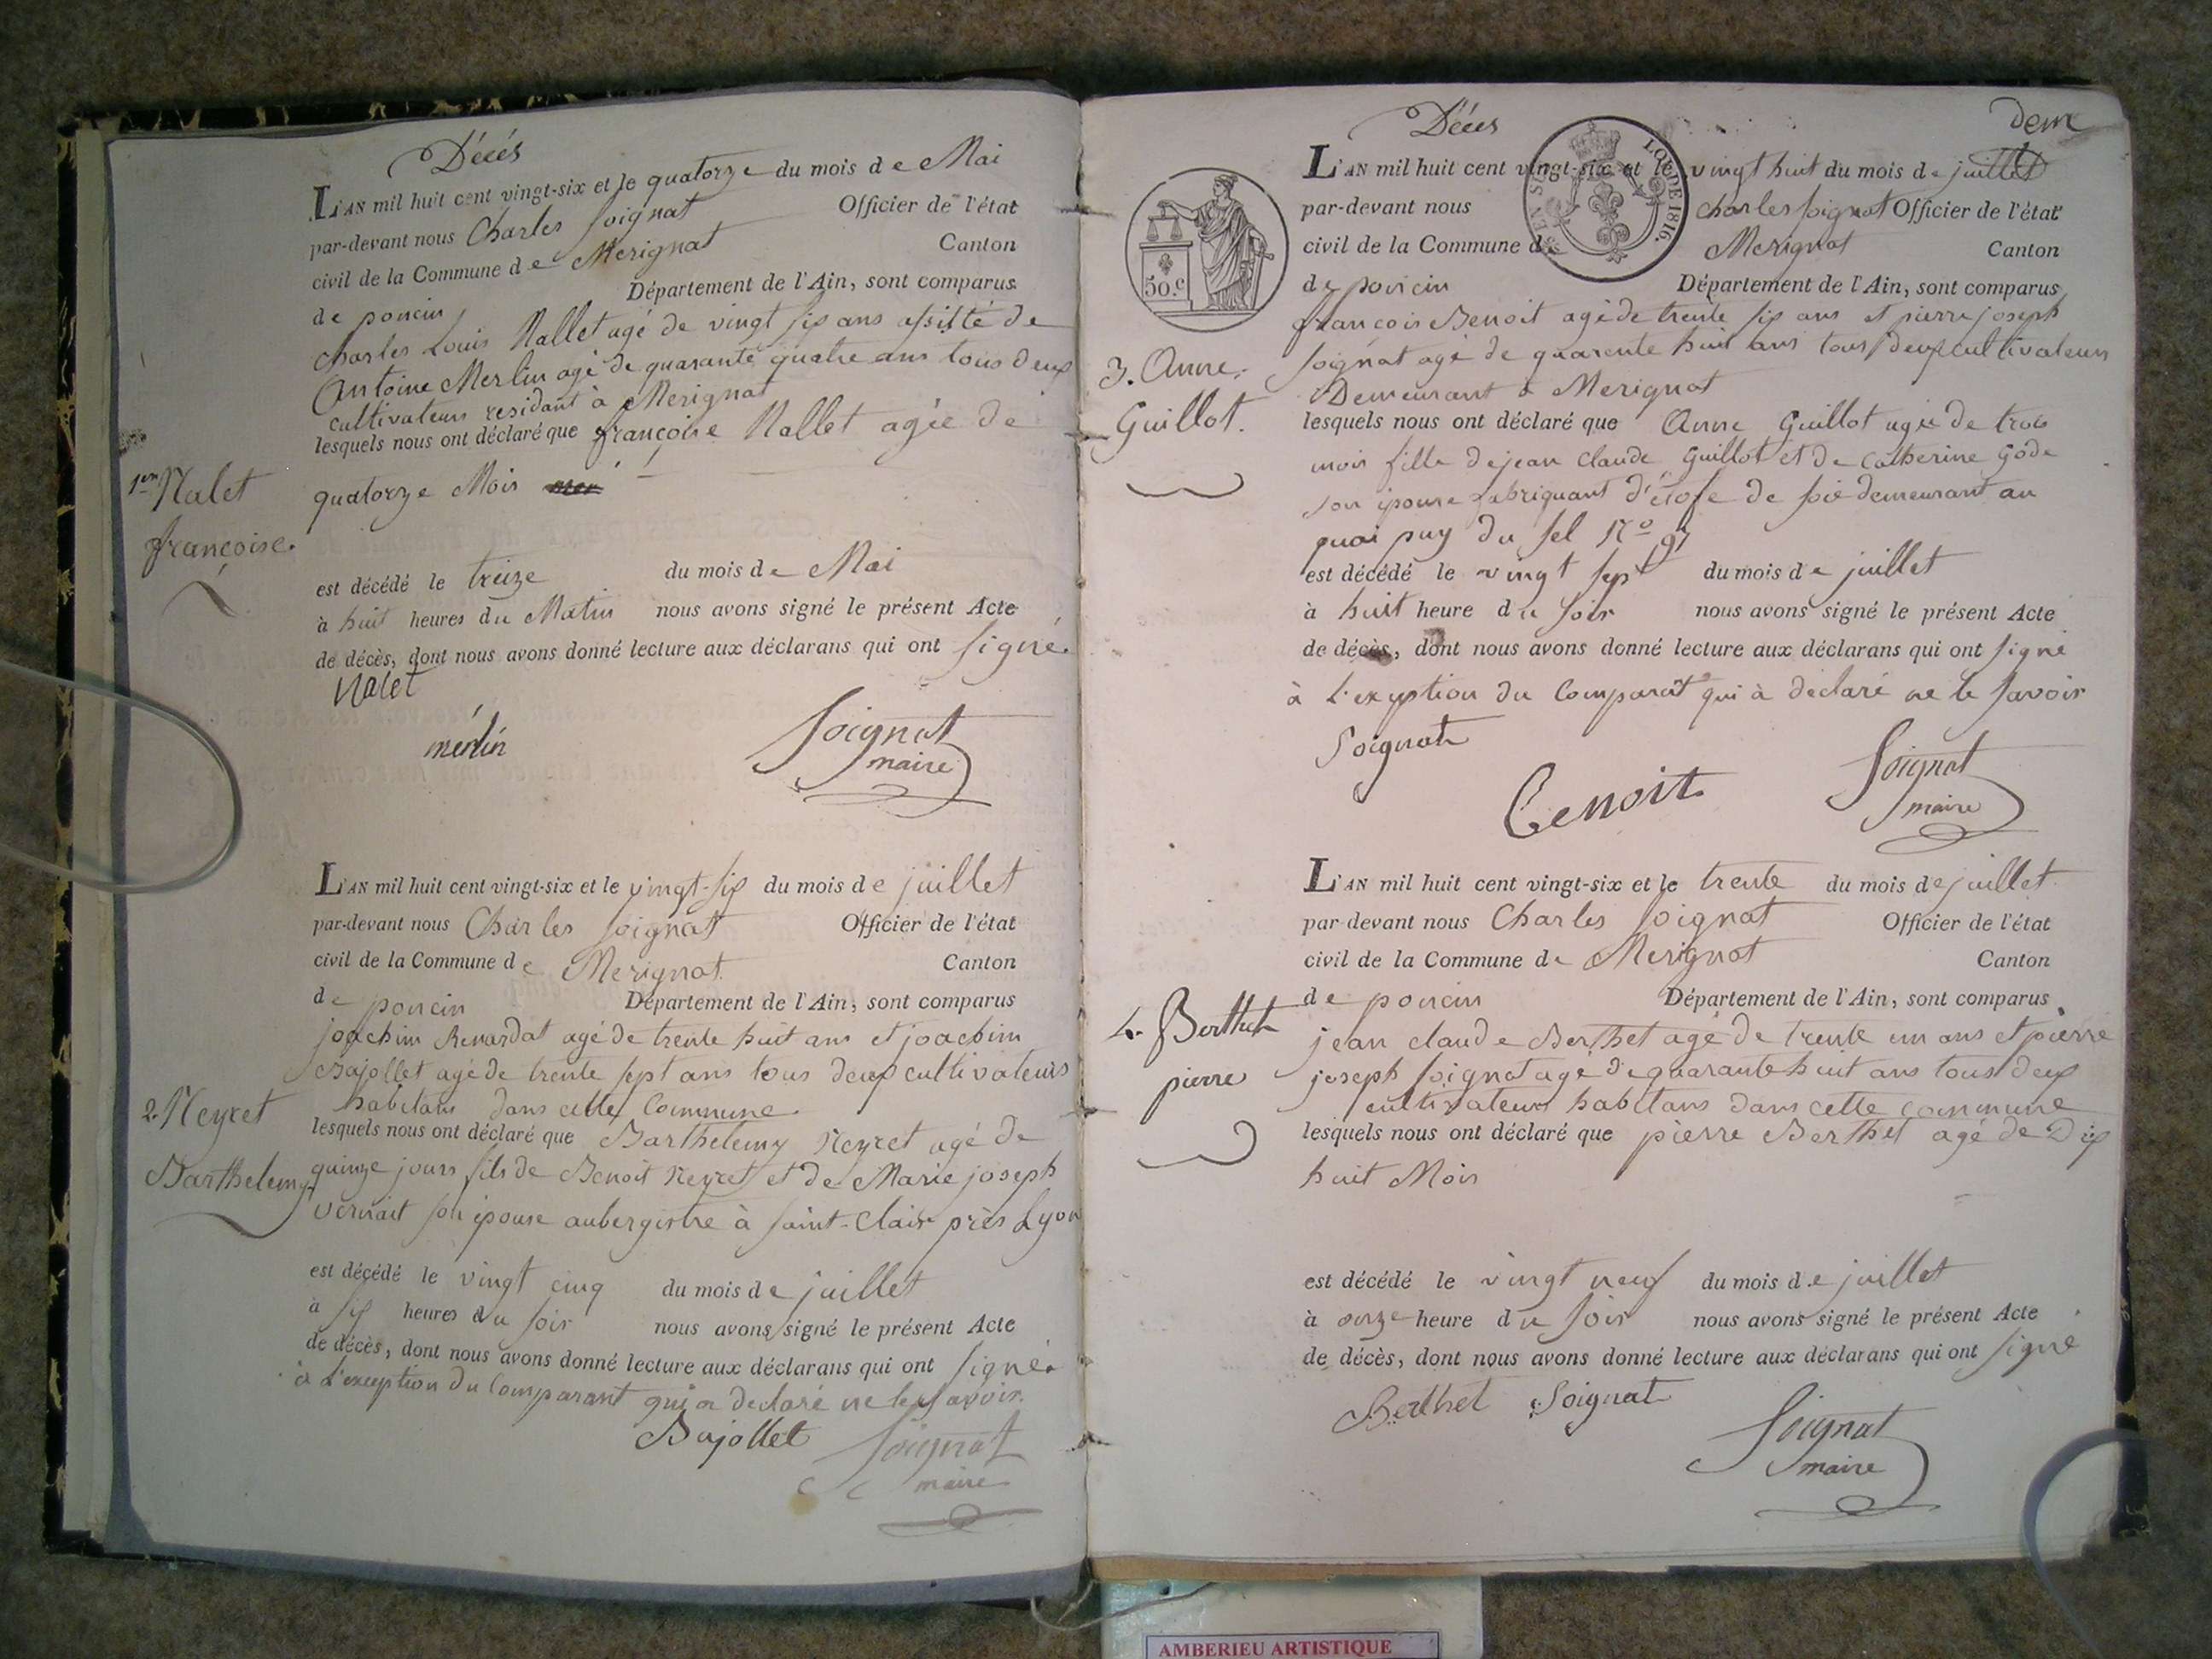 Décés
L'AN mil huit cent vingt-six et le quatorze du mois de Mai
par-devant nous Charles Soignat Officier de l'état
civil de la Commune de Merignat Canton
de poncin Département de l'Ain, sont comparus
Charles Louis Nallet agé de vingt six ans assisté de
Antoine Merlin agé de quarante quatre ans tous deux
cultivateurs residant à Merignat
lesquels nous ont déclaré que françoise Nallet agée de
1er Nalet
françoise.
quatorze Mois
est décédé le treize du mois de Mai
à huit heures du Matin nous avons signé le présent Acte
de décès, dont nous avons donné lecture aux déclarans qui ont signé.
Nalet
merlin
Soignat
maire
L'AN mil huit cent vingt-six et le vingt-six du mois de juillet
par-devant nous Charles Soignat Officier de l'état
civil de la Commune de Merignat Canton
de poncin Département de l'Ain, sont comparus
joachim Renardat agé de trente huit ans et joachim
Bajollet agé de trente sept ans tous deux cultivateurs
habitans dans cette Commune
2. Neyret
Barthelemy
lesquels nous ont déclaré que Barthelemy Neyret agé de
quinze jours fils de Benoit Neyret et de Marie joseph
son épouse aubergistre à Saint-Clair près Lyon
est décédé le vingt cinq du mois de juillet
à six heures du soir nous avons signé le présent Acte
de décès, dont nous avons donné lecture aux déclarans qui ont signé.
à L'exception du Comparant qui a declaré ne le savoir.
Bajollet Soignat
maire
Décés
dem
L'AN mil huit cent vingt-six et le vingt huit du mois de juillet
par-devant nous charles soignat Officier de l'état
civil de la Commune de Merignat Canton
de poncin Département de l'Ain, sont comparus
LOI DE 1816.
50.c
françois Benoit agé de trente six ans et pierre joseph
Soignat agé de quarente huit ans tous deux cultivateurs
Demeurant à Merignat
3. Anne
Guillot.
lesquels nous ont déclaré que Anne Guillot agée de trois
mois fille de jean Claude Guillot et de Catherine Gode
son épouse fabriquant d'étofe de soie demeurant au
quai puy du sel No 97
est décédé le vingt sept du mois de juillet
à huit heure du soir nous avons signé le présent Acte
de décès, dont nous avons donné lecture aux déclarans qui ont signé
à L'exeption du Comparat qui à declaré ne le savoir
Soignat
Benoit
Soignat
maire
L'AN mil huit cent vingt-six et le trente du mois de juillet
par devant nous Charles Soignat Officier de l'état
civil de la Commune de Merignat Canton
de poncin Département de l'Ain, sont comparus
4. Berthet
pierre
jean claude Berthet agé de trente un ans et pierre
joseph Soignat agé de quarante huit ans tous deux
cultivateurs habitans dans cette commune
lesquels nous ont déclaré que pierre Berthet agé de Dix
huit Mois
est décédé le vingt neuf du mois de juillet
à onze heure du soir nous avons signé le présent Acte
de décès, dont nous avons donné lecture aux déclarans qui ont signé
Berthet Soignat
Soignat
maire
AMBERIEU ARTISTIQUE